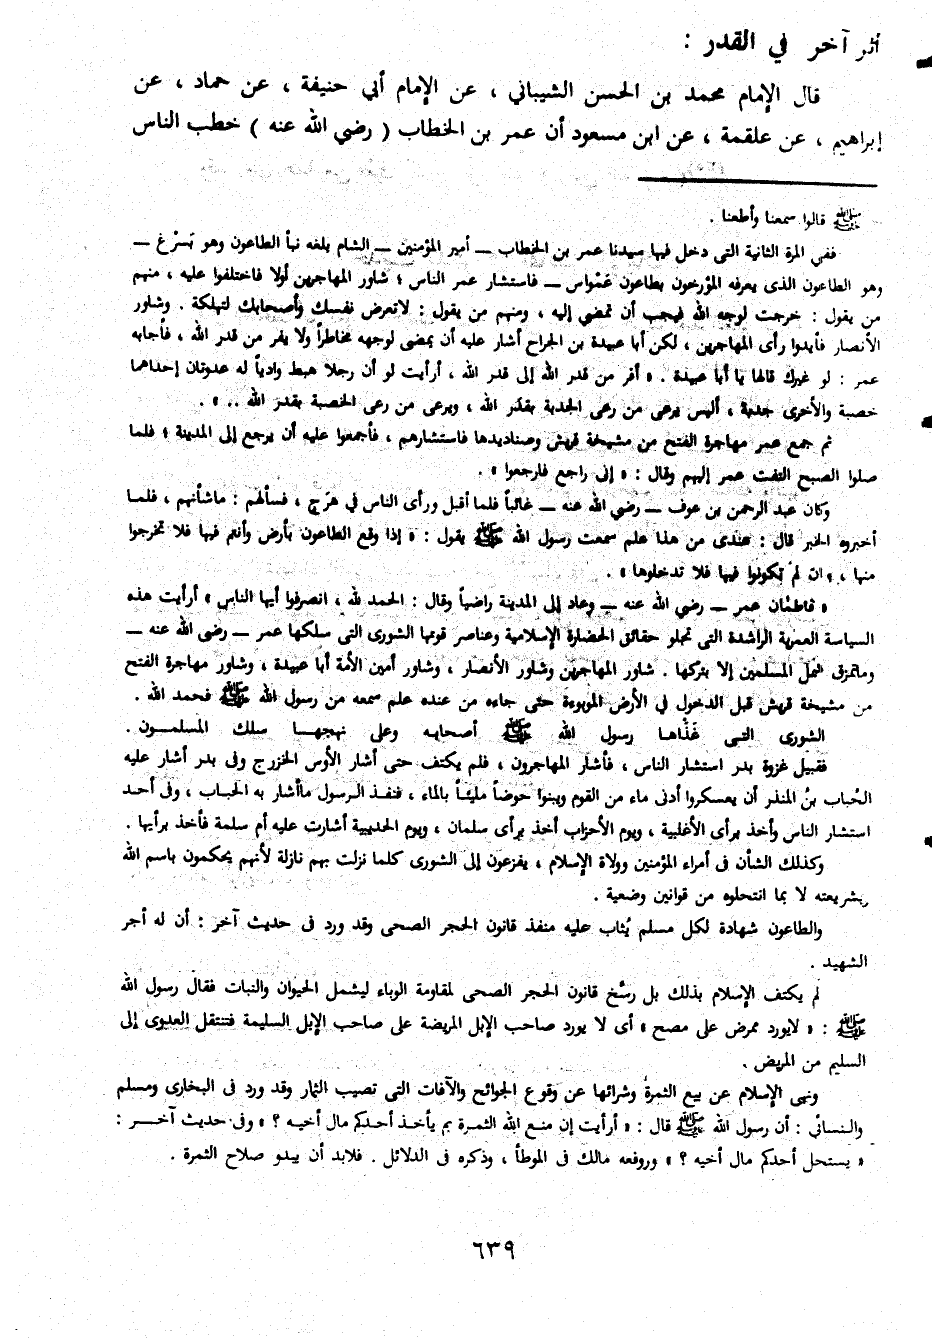 أثر آخر في القدر :
قال الإمام محمد بن الحسن الشيباني ، عن الإمام أبي حنيفة ، عن حماد ، عن
إبراهيم ، عن علقمة ، عن ابن مسعود أن عمر بن الخطاب ( رضي الله عنه ) خطب الناس
ﷺ قالوا سمعنا وأطعنا .
ففي المرة الثانية التى دخل فيها سيدنا عمر بن الخطاب ــ أمير المؤمنين ــ الشام بلغه نبأ الطاعون وهو بَسرْغ ــ
وهو الطاعون الذى يعرفه المؤرخون بطاعون عَمْواس ــ فاستشار عمر الناس ؛ شاور المهاجرين أولا فاختلفوا عليه ، منهم
من يقول : خرجت لوجه الله فيجب أن تمضي إليه ، ومنهم من يقول : لاتعرض نفسك وأصحابك لتهلكة . وشاور
الأنصار فأيدوا رأى المهاجرين ، لكن أبا عبيدة بن الجراح أشار عليه أن يمضى لوجهه مخاطراً ولا يفر من قدر الله ، فأجابه
عمر : لو غيرك قالها يا أبا عبيدة . « أفر من قدر الله إلى قدر الله ، أرأيت لو أن رجلا هبط وادياً له عدوتان إحداهما
خصبة والأخرى جدبة ، أليس يرعى من رعى الجدبة بقدر الله ، ويرعى من رعى الخصبة بقدر الله .. » .
ثم جمع عمر مهاجرة الفتح من مشيخة قريش وصناديدها فاستشارهم ، فأجمعوا عليه أن يرجع إلى المدينة ؛ فلما
صلوا الصبح التفت عمر إليهم وقال : « إنى راجع فارجعوا » .
وكان عبد الرحمن بن عوف ــ رضي الله عنه ــ غائباً فلما أقبل ورأى الناس في هرَج ، فسألهم : ماشأنهم ، فلما
أخبروه الخبر قال : عندى من هذا علم سمعت رسول الله ﷺ يقول : « إذا وقع الطاعون بأرض وأنتم فيها فلا تخرجوا
منها ، « ان لم تكونوا فيها فلا تدخلوها » .
« فاطمئان عمر ــ رضي الله عنه ــ وعاد إلى المدينة راضياً وقال : الحمد لله ، انصرفوا أيها الناس » أرأيت هذه
السياسة العمرية الراشدة التى تجلو حقائق الحضارة الإسلامية وعناصر قوتها الشورى التى سلكها عمر ــ رضي الله عنه ــ
وماتمزق شمل المسلمين إلا بتركها . شاور المهاجرين وشاور الأنصار ، وشاور أمين الأمة أبا عبيدة ، وشاور مهاجرة الفتح
من مشيخة قريش قبل الدخول في الأرض الموبوءة حتى جاءه من عنده علم سمعه من رسول الله ﷺ فحمد الله .
الشورى التى غَذَّاها رسول الله ﷺ أصحابه وعلى نهجهـا سلك المسلمـون .
فقبيل غزوة بدر استشار الناس ، فأشار المهاجرون ، فلم يكتف حتى أشار الأوس الخزرج وفى بدر أشار عليه
الحُباب بنُ المنذر أن يعسكروا أدنى ماء من القوم ويبنوا حوضاً مليئاً بالماء ، فنفذ الرسول ماأشار به الحباب ، وفى أحد
استشار الناس وأخذ برأى الأغلبية ، ويوم الأحزاب أخذ برأى سلمان ، ويوم الحديبية أشارت عليه أم سلمة فأخذ برأيها .
وكذلك الشأن في أمراء المؤمنين وولاة الإسلام ، يفزعون إلى الشورى كلما نزلت بهم نازلة لأنهم يحكمون باسم الله
بشريعته لا بما انتحلوه من قوانين وضعية .
والطاعون شهادة لكل مسلم يُثاب عليه منفذ قانون الحجر الصحى وقد ورد فى حديث آخر : أن له أجر
الشهيد .
لم يكتف الإسلام بذلك بل رسَّخ قانون الحجر الصحى لمقاومة الوباء ليشمل الحيوان والنبات فقال رسول الله
ﷺ : « لايورد ممرض على مصح » أى لا يورد صاحب الإبل المريضة على صاحب الإبل السليمة فتنتقل العدوى إلى
السليم من المريض .
ونهى الإسلام عن بيع الثمرة وشرائها عن وقوع الجوائح والآفات التى تصيب الثمار وقد ورد فى البخارى ومسلم
والنسائي : أن رسول الله ﷺ قال : « أرأيت إن منع الله الثمرة بم يأخذ أحدكم مال أخيه ؟ » وفى حديث آخر :
« يستحل أحدكم مال أخيه ؟ » وروفعه مالك فى الموطأ ، وذكره فى الدلائل . فلابد أن يبدو صلاح الثمرة .
٦٣٩